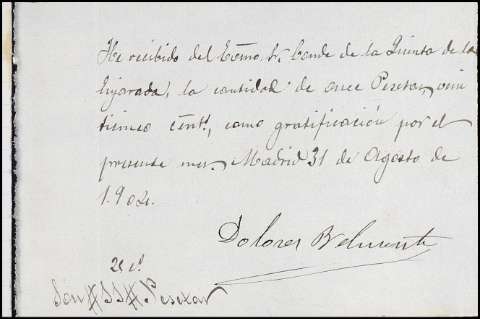 He recibido del Exõmo Sr. Conde de la Quinta de la
Enjarada, la cantidad de once Pesetas, vein
ticinco cents, como gratificación por el
presente mes. Madrid 31 de Agosto de
1.902.
Dolores Belmonte
25 cs.
Son #11# Pesetas